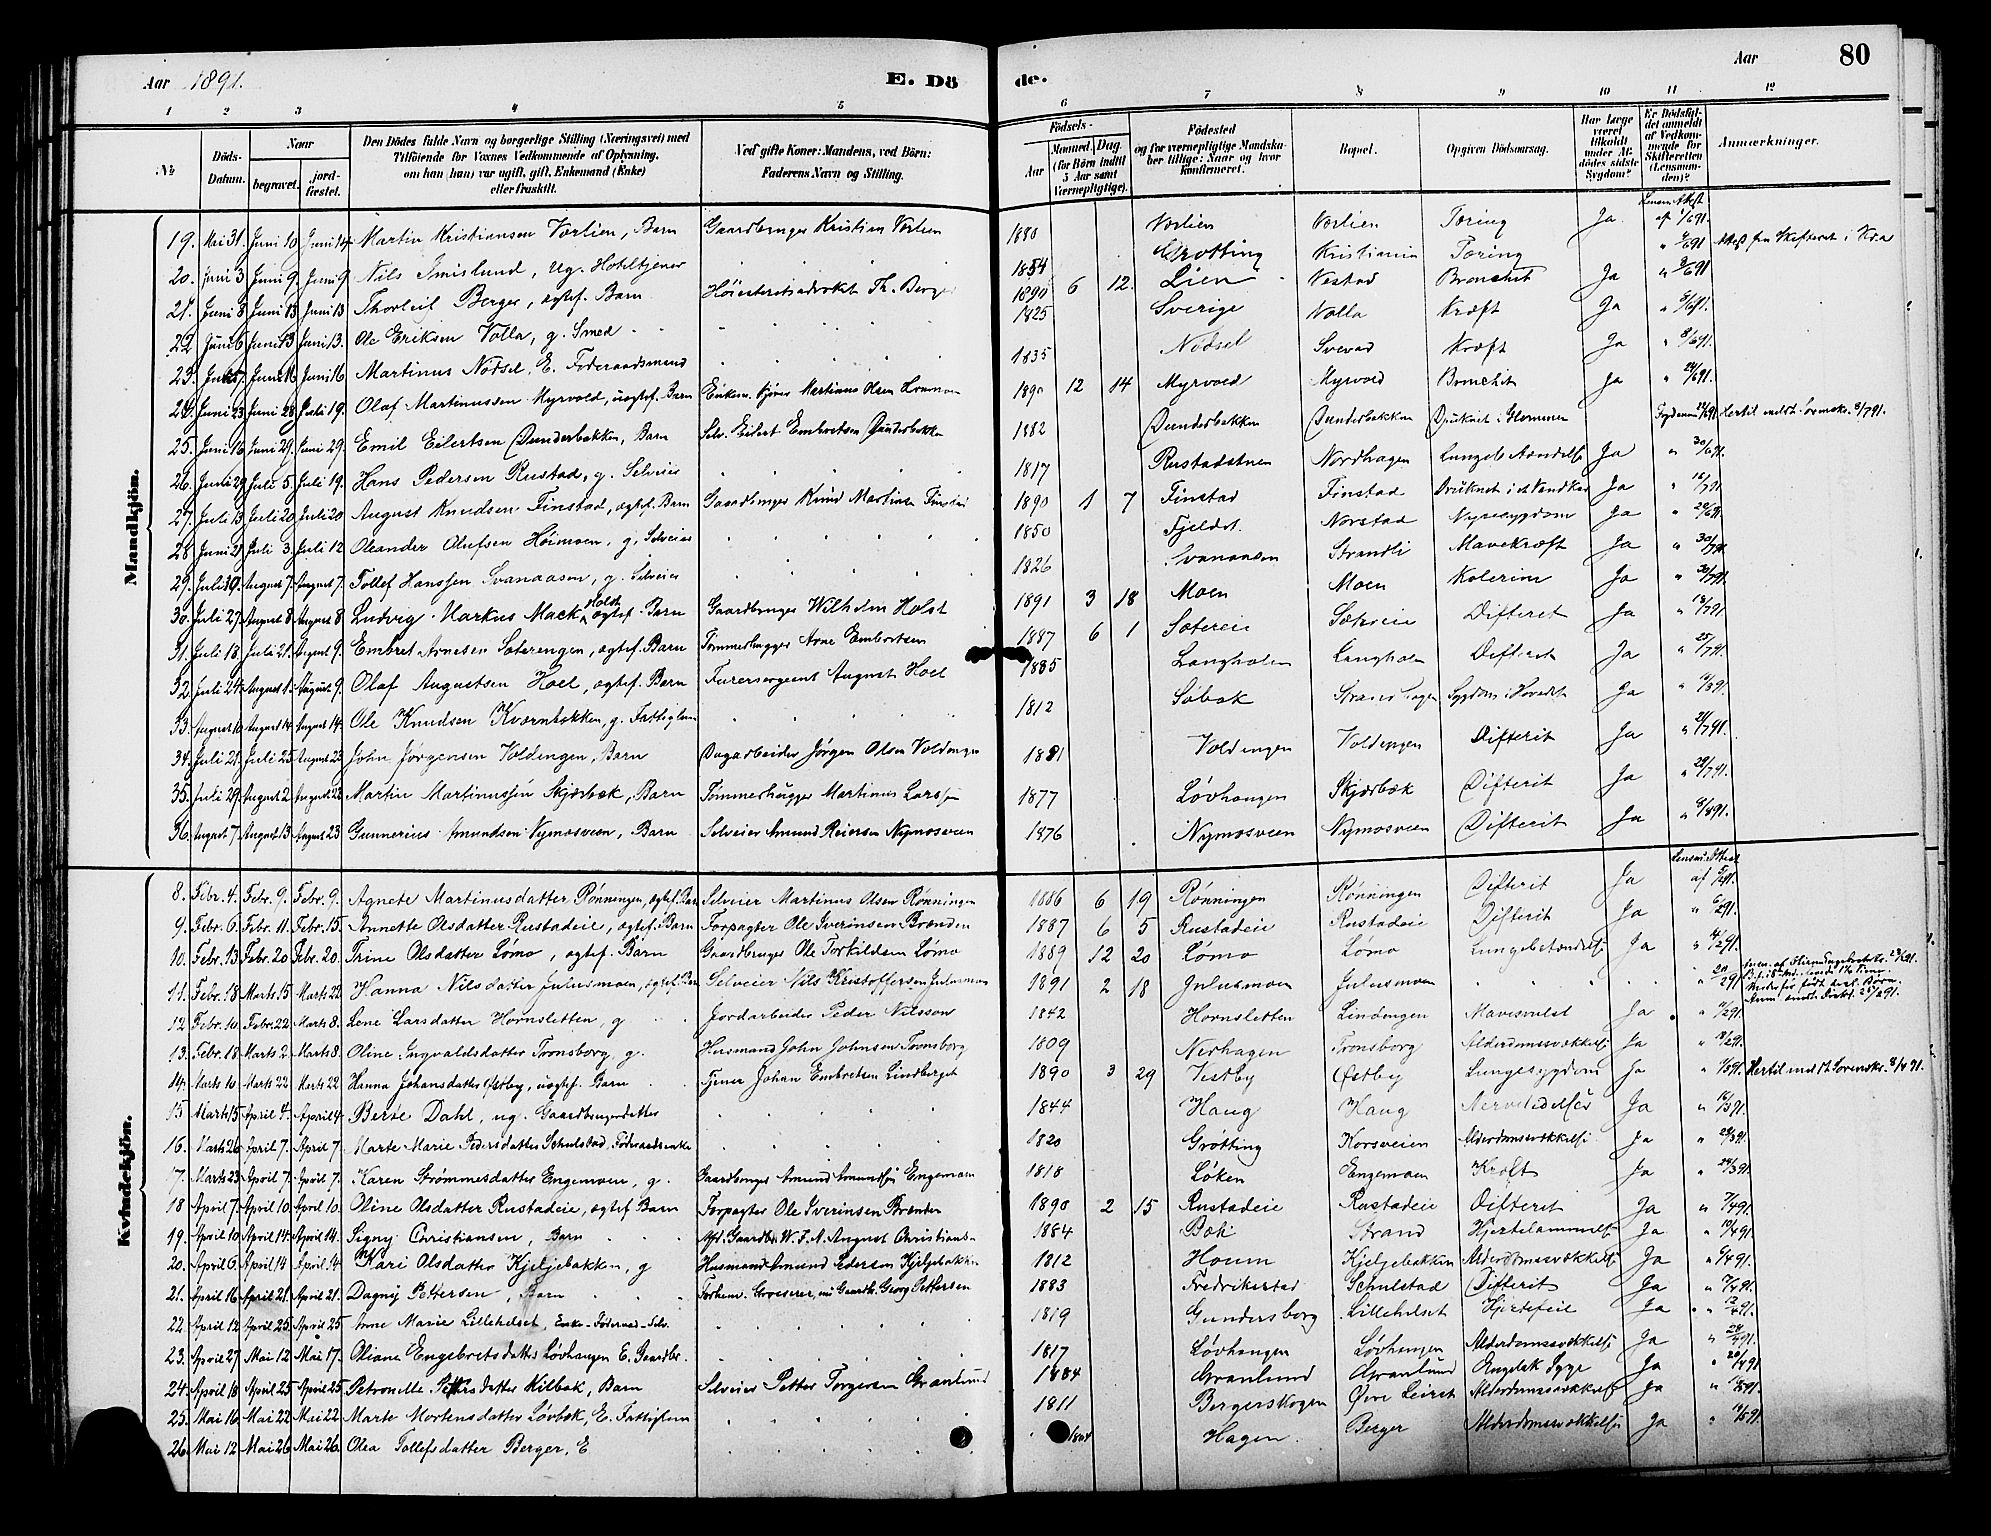 Aar 1891. E. Dö de. Aar 80
1 2 3 4 5 6 7 8 9 10 11 12
№ Döds-Datum. Naar begravet. jordfæstet. Den Dödes fulde Navn og borgerlige Stilling (Næringsvei) med Tilföiende for Voxnes Vedkommende af Oplysning, om han (hun) var ugift, gift, Enkemand (Enke) eller fraskilt. Ved gifte Koner: Mandens, ved Börn: Faderens Navn og Stilling. Födsels- Aar Maaned Dag (for Börn indtil 5 Aar samt Værnepligtige). Födested og for værnepligtige Mandskaber tillige: Naar og hvor konfirmeret. Bopæl. Opgiven Dödsaarsag. Har Læge været tilkaldt under Afdödes sidste Sygdom? Er Dödsfaldet anmeldt af Vedkommende for Skifteretten (Lensmanden)? Anmærkninger.
Mandkjön.
19. Mai 31. Juni 10 Juni 14 Martin Kristiansen Vorlien, Barn Gaardbruger Kristian Vorlien 1880 Vorlien Vorlien Tæring Ja. Lensm. Attest af 1/6 91.
20. Juni 3 Juni 9. Juni 9 Nils Imislund, ug. Hoteltjener 1854 Grotting Kristiania Tæring " 9/6 91 Attest fra Skifteret i Kr.a
21. Juni 8 Juni 13 Juni 13 Thorleif Berger, ægtef. Barn Höiesteretsadvokat Th. Berger 1890 6 12. Lien Nestad Bronchit Ja " 9/6 91
22 Juni 6 Juni 13 Juni 13. Ole Eriksen Volla, g. Smed 1825 Sverige Volla Kræft Ja " 8/6 91.
23. Juni Juni 16 Juni 16 Martinus Nödsel, E. Föderaadsmand 1835 Nödsel Svevad Kræft Ja " 8/6 91.
24. Juni 23 Juni 28 Juli 19. Olaf Martinussen Myrvold, uægtef. Barn Enkem. Martinus Olsen 1890 12 14 Myrvold Myrvold Bronchit Ja " 24/6 91.
25. Juni 16 Juni 29. Juni 29. Emil Eilertsen Dunderbakken, Barn Selv. Eilert Embretsen Dunderbakken 1882 Dunderbakken Dunderbakken Druknet i Glommen 24/6 91 Hertil meldt Sorenskr. 8/7 91.
26. Juni 29 Juli 5. Juli 19. Hans Pedersen Rustad, g. Selveier 1817 Rustadstuen Nordhagen Ja " 30/6 91.
27. Juli 13 Juli 20 Juli 20 August Knudsen Finstad, ægtef. Barn Gaardbruger Knud Martinsen Finstad 1890 1 7 Finstad Finstad Druknet i et Vandkar Ja " 16/7 91
28 Juni 29 Juli 3. Juli 12 Oleander Olufsen Höimoen, g. Selveier 1850 Fjeldst. Norstad Nyresygdom Ja " 29/6 91.
29. Juli 30. August 7. August 7. Tollef Hanssen Svanaasen, g. Selveier 1826 Svanaasen Strandli Mavekræft Ja " 30/7 91.
30. Juli 27. August 8 August 8 Ludvig Markus Mack Holst ægtef. Barn Gaardbruger Wilhelm Holst 1891 3 18 Moen Moen Kolerine Ja " 30/7 91.
31. Juli 18. Juli 21. August 9. Embret Arnesen Sæterengen, ægtef. Barn Tömmerhugger Arne Embretsen 1887 6 1 Sætereie Sætreie Difterit Ja " 18/7 91
32. Juli 24. August 1. August 9. Olaf Augustsen Hoel, ægtef. Barn Furersergeant August Hoel 1885 Langholen Langholen Difterit Ja " 25/7 91.
33. August 10 August 14 August 14. Ole Knudsen Kværnbækken, g. Fattiglem 1812 Söbak Strandhagen Sygdom i Hovedet Ja
34. Juli 21. Juli 25 August 23 John Jörgensen Voldengen, Barn Dagarbeider Jörgen Olsen Voldengen 1881 Voldengen Voldengen Difterit Ja " 21/7 91.
35. Juli 29. August 2 August 23 Martin Martinussen Skjærbæk, Barn Tömmerhugger Martinus Larssen 1877 Lövhaugen Skjærbæk Difterit Ja " 29/7 91.
36. August 7. August 13 August 23 Gunnerius Amundsen Nymosveen, Barn Selveier Amund Reiersen Nymosveen 1876 Nymosveen Nymosveen Difterit Ja " 8/8 91.
Kvindekjön.
8. Febr. 4. Febr. 9. Febr. 9. Agnete Martinusdatter Rönningen, ægtef. Barn Selveier Martinus Olsen Rönningen 1886 6 19 Rönningen Rönningen Difterit Ja Lensm. Attest af 5/2 91.
9. Febr. 6. Febr. 11. Febr. 15. Annette Olsdatter Rustadeie, ægtef. Barn Forpagter Ole Iverinsen Brænden 1887 6 5 Rustadeie Rustadeie Difterit Ja " 6/2 91.
10. Febr. 13 Febr. 20 Febr. 20. Trine Olsdatter Lömo, ægtef. Barn Gaardbruger Ole Torkildsen Lömo 1889 12 20 Lömo Lömo Lungebetændelse Ja " 14/2 91.
11. Febr. 18 Marts 15 Marts 22 Hanna Nilsdatter Julusmoen, ægtef. Barn Selveier Nils Kristoffersen Julusmoen 1891 2 18 Julusmoen Julusmoen " 20/2 91
12 Febr. 10. Febr. 22 Marts 8. Lene Larsdatter Hornsletten, g Jordarbeider Peder Nilsson 1842 Hornsletten Lindengen Mavesvulst Ja " 11/2 91.
13. Febr. 18 Marts 2 Marts 8. Oline Ingvaldsdatter Tronsborg, g. Husmand John Johnsen Tronsborg 1809 Nerhagen Tronsborg Alderdomssvækkelse Ja
14. Marts 10 Marts 22 Marts 22 Hanna Johansdatter Östby, uægtef. Barn Tjener Johan Embretsen Lindberget 1890 3 29 Vestby Östby Lungesygdom Ja " 11/3 91. Hertil meldt Sorenskr. 8/4 91.
15 Marts 15 April 4. April 4. Berte Dahl, ug. Gaardbrugerdatter 1844 Haug Haug Nervelidelser Ja " 16/3 91.
16. Marts 26 April 7. April 7 Marte Marie Pedersdatter Schulstad, Föderaadsenke 1820 Grötting Korsveien Alderdomssvækkelse Ja " 28/3 91.
17. Marts 23 April 7. April 7. Karen Strömmesdatter Engemoen, g. Gaardbruger Amund Amundsen Engemoen 1818 Löken Engemoen Kræft Ja " 24/3 91.
18 April 7. April 10. April 10. Oline Olsdatter Rustadeie, ægtef. Barn Forpagter Ole Iverinsen Brænden 1890 2 15 Rustadeie Rustadeie Difterit Ja " 7/4 91.
19. April 10 April 14. April 14. Signy Christiansen, Barn Afd. Gaardbr. W. F. A. August Christiansen 1884 Bæk Strand Hjertelammelse Ja " 10/4 91.
20. April 6. April 14 April 14 Kari Olsdatter Kjeljebakken, g Husmand Amund Pedersen Kjeljebakken 1812 Houm Kjeljebakken Alderdomssvækkelse Ja " 6/4 91.
21. April 16 April 21. April 21. Dagny Pettersen, Barn Forhenv. Grosserer, nu Gaardb. Georg Pettersen 1883 Fredrikstad Schulstad Difterit Ja " 17/4 91.
22. April 12 April 25. April 25 Anne Marie Lillehelset, Enke Föderaad Selv. 1819 Gundersborg Lillehelset Hjertefeil Ja " 12/4 91.
23. April 27 Mai 12 Mai 17. Oliane Engebretsdatter Lövhaugen E. Gaardbr. 1817 Lövhaugen Lövhaugen Alderdomssvækkelse Ja " 28/4 91.
24. April 18 April 25 April 25 Petronelle Pettersdatter Kilbæk, Barn Selveier Petter Torgersen Granlund 1884 Granlund Granlund Engelsk Syge Ja " 20/4 91
25. Mai 16 Mai 22 Mai 22 Marte Mortensdatter Lövbæk, E. Fattiglem 1811 Bergerskogen Övre Leiret Alderdomssvækkelse Ja
26. Mai 12 Mai 26. Mai 26. Olea Tollefsdatter Berger, E Hagen Berger Alderdomssvækkelse Ja